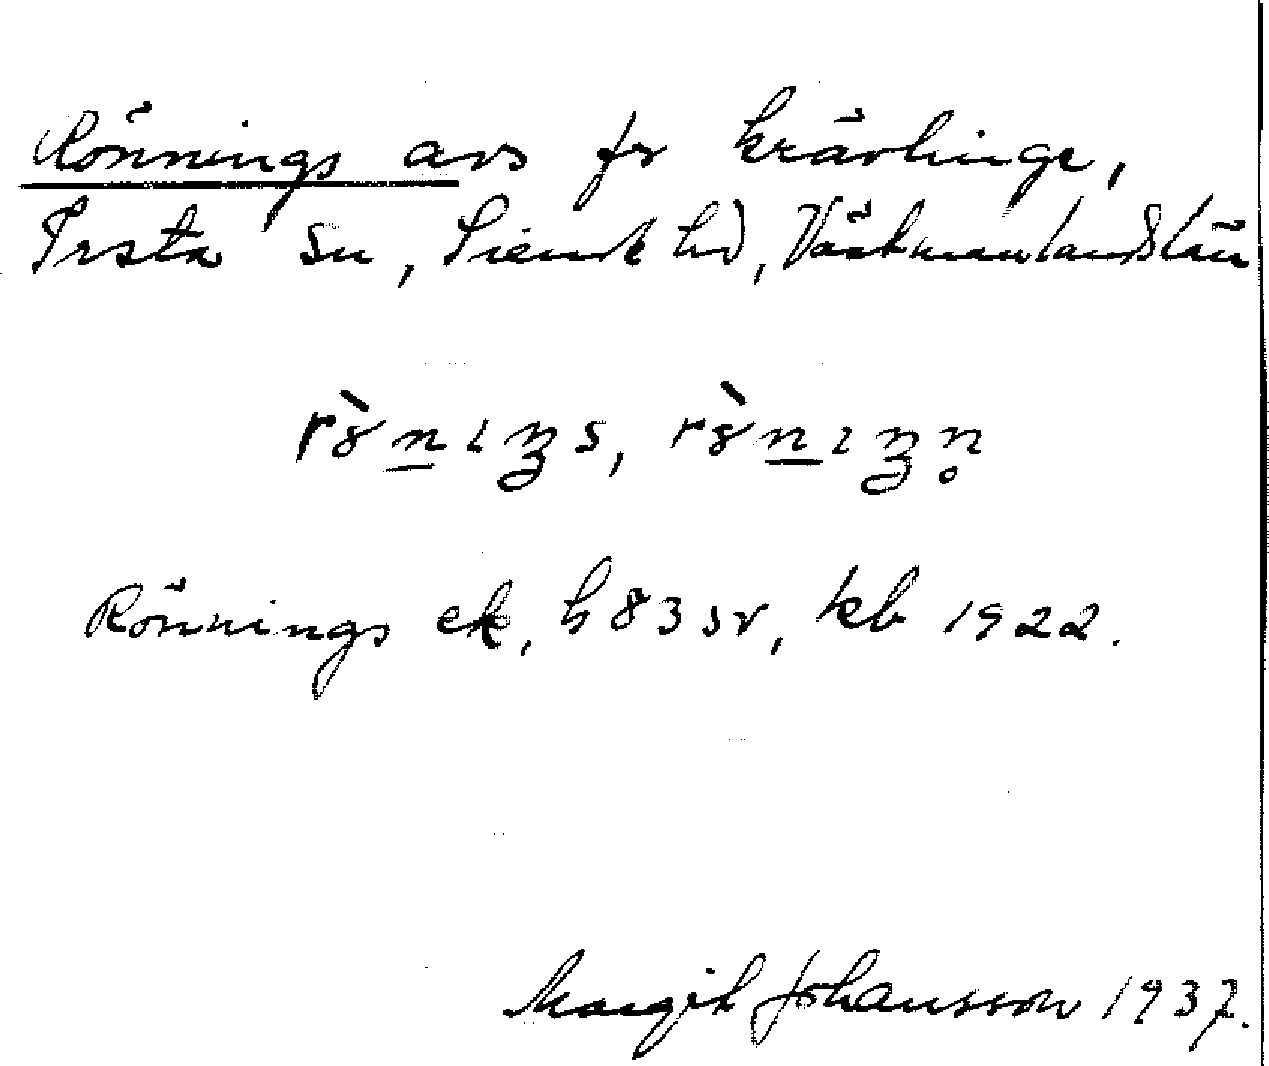 Rönnings avs fr Krävlinge,
Irsta sn, Siende hd, Västmanlands län
rö̀nıŋs, rö̀nıŋn̥
Rönnings ek, h 83 sr, kb 1922.
Margit Johansson 1937.